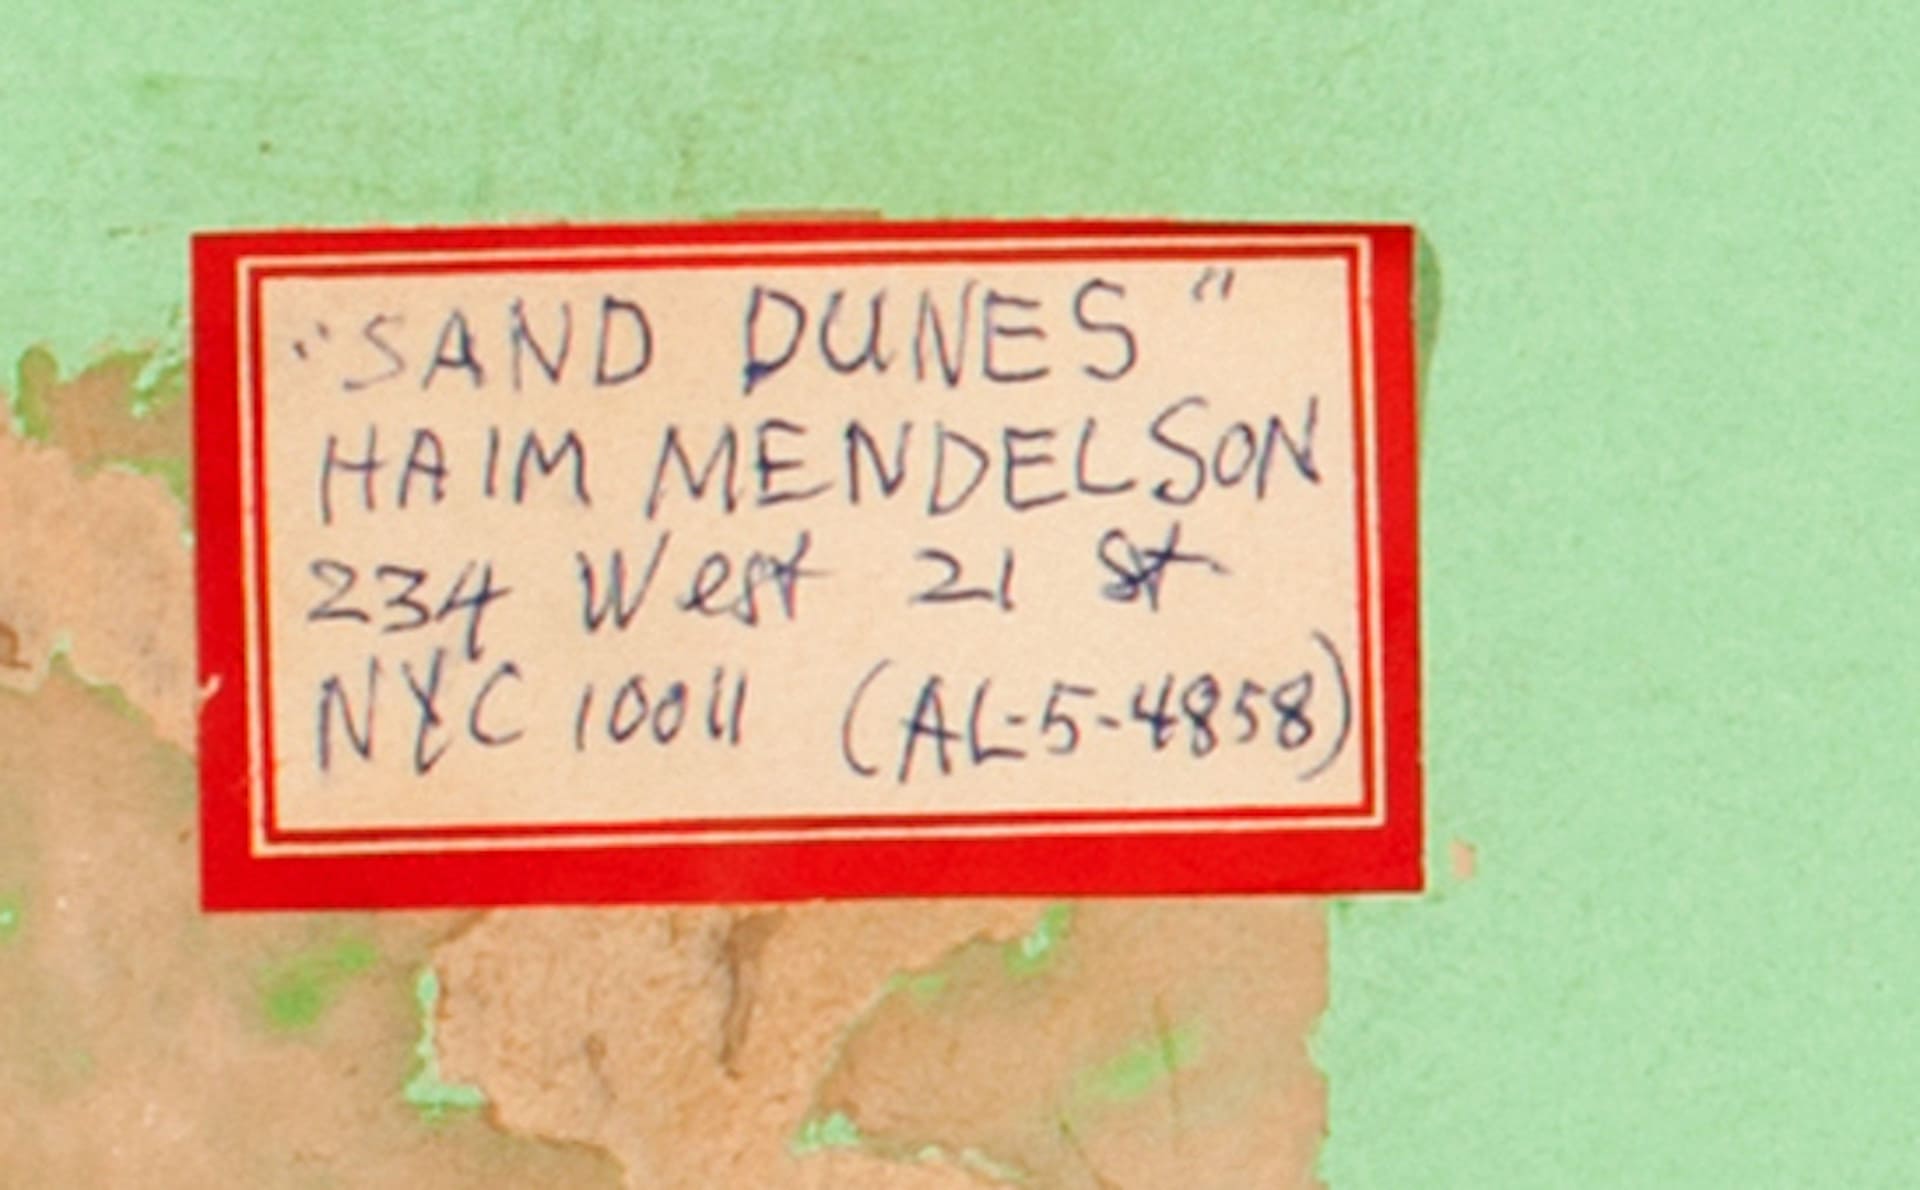 "SAND DUNES"
HAIM MENDELSON
234 West 21 st
NYC 10011 (AL-5-4858)